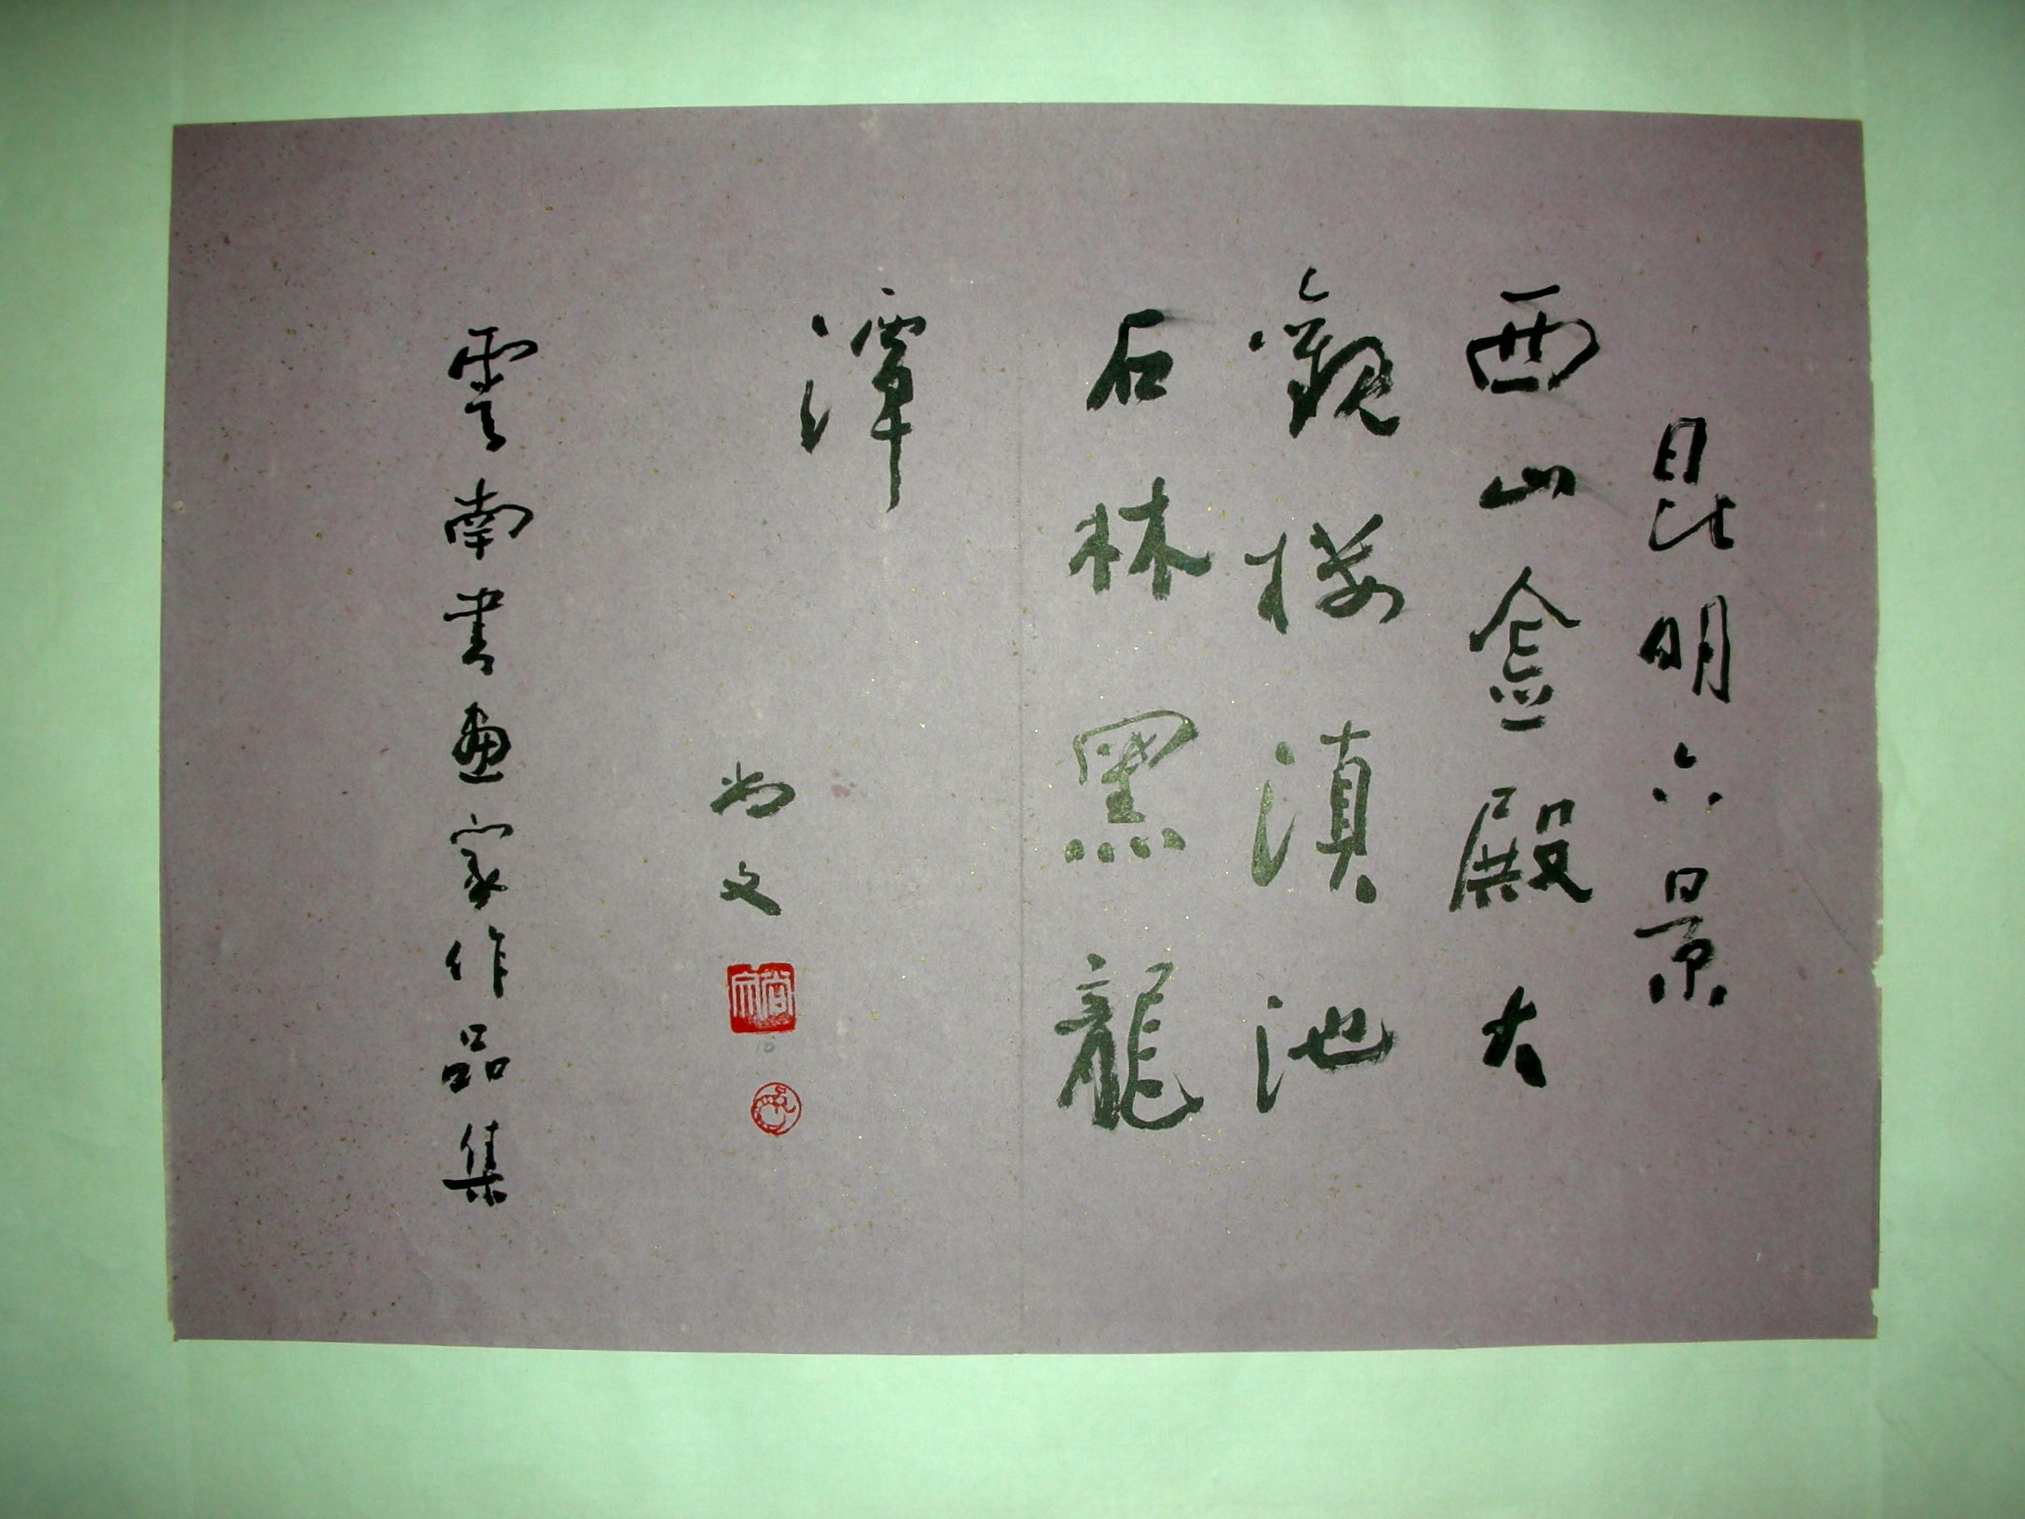 昆明六景
西山金殿大
觀楼滇池
石林黑龍
潭
尚文
雲南書畫家作品集